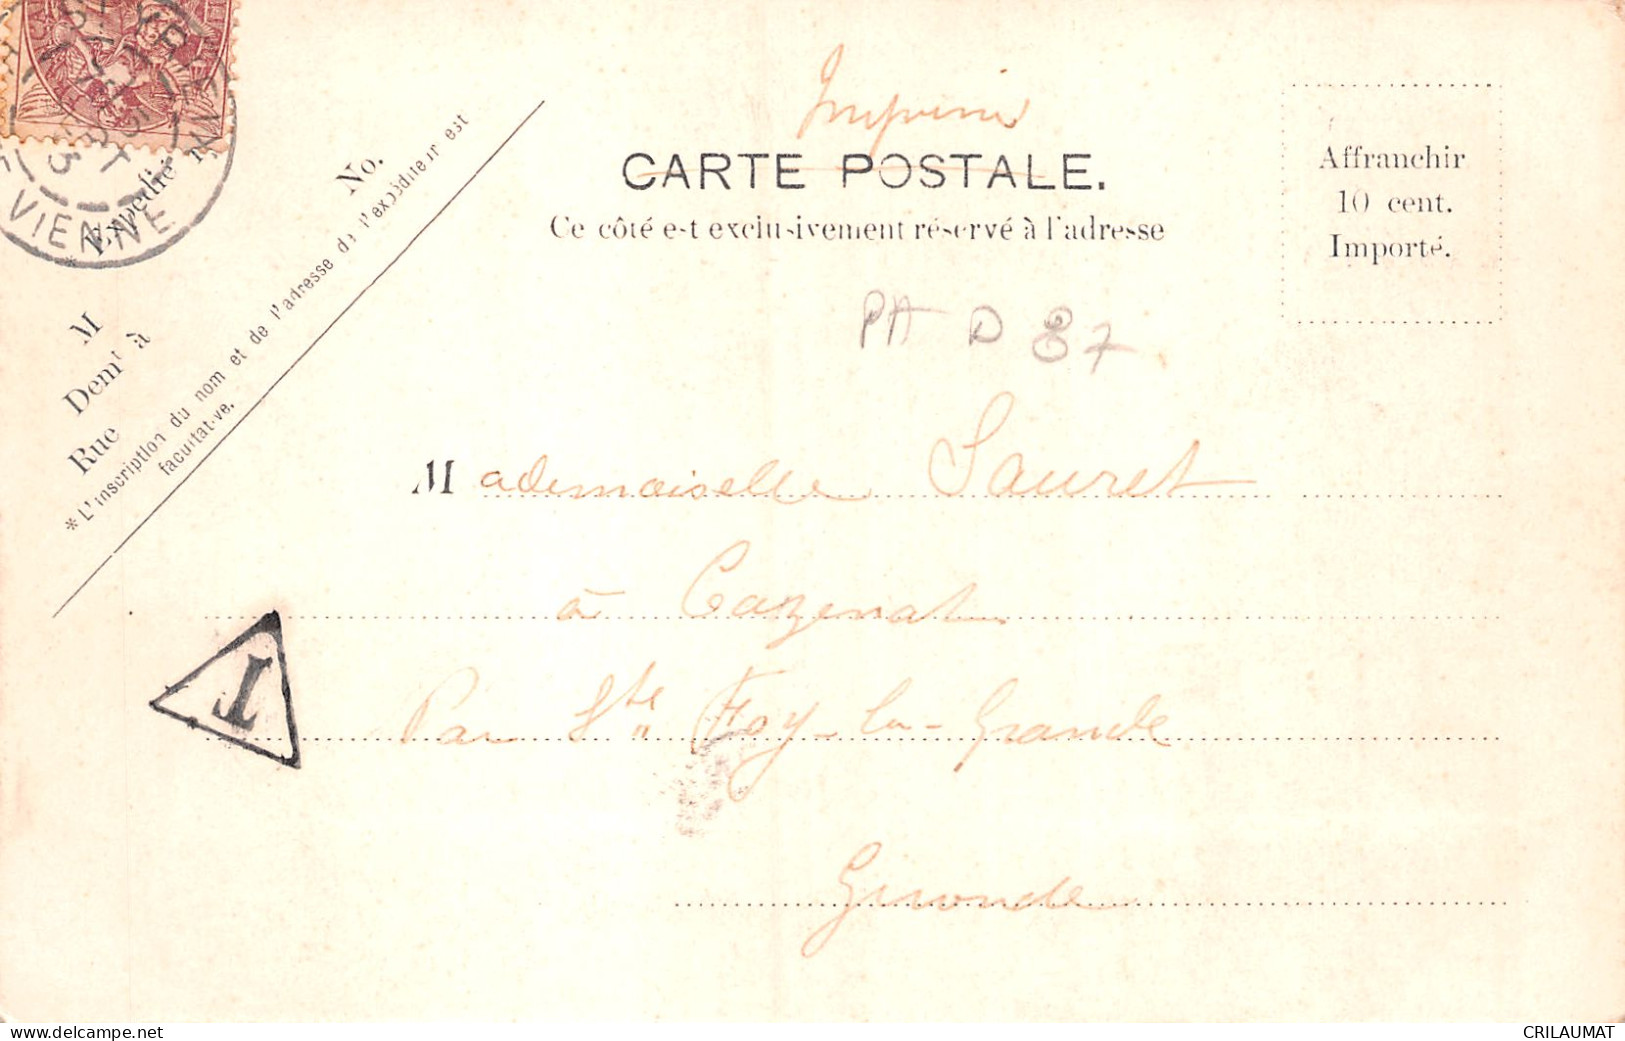 Imprimé
CARTE POSTALE.
Ce côté est exclusivement réservé à l'adresse
Affranchir
10 cent.
Importé.
VIENNE
Expédié
No.
M
Demt à
Rue
*L'inscription du nom et de l'adresse de l'expéditeur est
facultative.
PA D 87
Mademoiselle Sauret
à Cazenat
Par Ste Foy-la-Grande
Gironde
T
CRILAUMAT